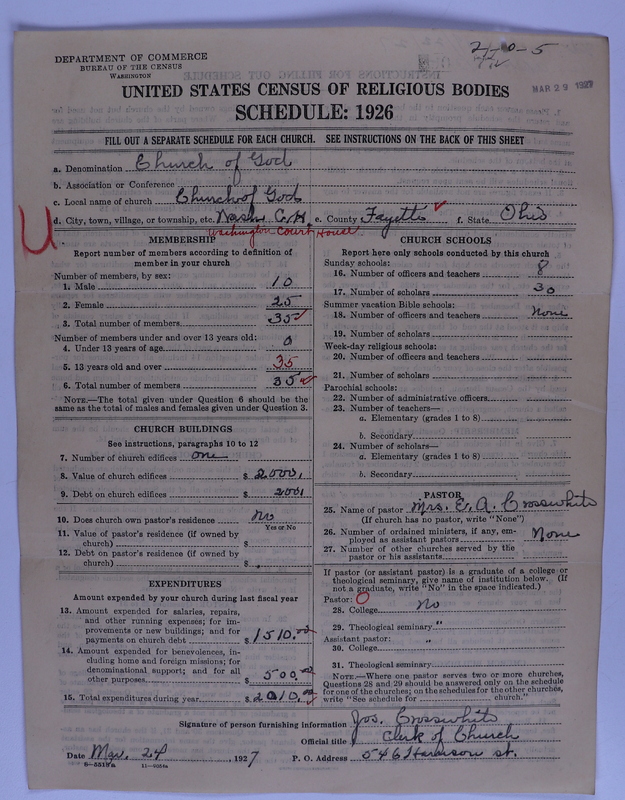 2-0-5
DEPARTMENT OF COMMERCE
BUREAU OF THE CENSUS
WASHINGTON
MAR 29 1927
UNITED STATES CENSUS OF RELIGIOUS BODIES
SCHEDULE: 1926
FILL OUT A SEPARATE SCHEDULE FOR EACH CHURCH. SEE INSTRUCTIONS ON THE BACK OF THIS SHEET
a. Denomination Church of God
b. Association or Conference
c. Local name of church Church of God
d. City, town, village, or township, etc. Wash. C.H. e. County Fayette f. State Ohio
Washington Court House
MEMBERSHIP
Report number of members according to definition of
member in your church
Number of members, by sex:
1. Male 10
2. Female 25
3. Total number of members 35
Number of members under and over 13 years old:
4. Under 13 years of age 0
5. 13 years old and over 35
6. Total number of members 35
NOTE.—The total given under Question 6 should be
same as the total of males and females given under Question 3.
CHURCH BUILDINGS
See instructions, paragraphs 10 to 12
7. Number of church edifices one
8. Value of church edifices $ 2000
9. Debt on church edifices $ 200
10. Does church own pastor's residence No
Yes or No
11. Value of pastor's residence (if owned by
church) $
12. Debt on pastor's residence (if owned by
church) $
EXPENDITURES
Amount expended by your church during last fiscal year
13. Amount expended for salaries, repairs,
and other running expenses; for im-
provements or new buildings; and for
payments on church debt $ 1510.00
14. Amount expended for benevolences, in-
cluding home and foreign missions; for
denominational support; and for all
other purposes $ 500.00
15. Total expenditures during year $ 2010.00
CHURCH SCHOOLS
Report here only schools conducted by this church
Sunday schools:
16. Number of officers and teachers 8
17. Number of scholars 30
Summer vacation Bible schools:
18. Number of officers and teachers None
19. Number of scholars
Week-day religious schools:
20. Number of officers and teachers
21. Number of scholars
Parochial schools:
22. Number of administrative officers
23. Number of teachers—
a. Elementary (grades 1 to 8)
b. Secondary
24. Number of scholars—
a. Elementary (grades 1 to 8)
b. Secondary
PASTOR
25. Name of pastor Mrs. E. A. Crosswhite
(If church has no pastor, write "None")
26. Number of ordained ministers, if any, em-
ployed as assistant pastors None
27. Number of other churches served by the
pastor or his assistants
If pastor (or assistant pastor) is a graduate of a college or
theological seminary, give name of institution below. (If
not a graduate, write "No" in the space indicated.)
Pastor: O
28. College No
29. Theological seminary "
Assistant pastor: "
30. College
31. Theological seminary
NOTE.—Where one pastor serves two or more churches,
Questions 28 and 29 should be answered only on the schedule
for one of the churches; on the schedules for the other churches,
write "See schedule for church."
Signature of person furnishing information Jos. Crosswhite
Official title Clerk of Church
Date Mar. 24, 1927 P. O. Address 546 Harrison st.
8-5513a 11-9054a